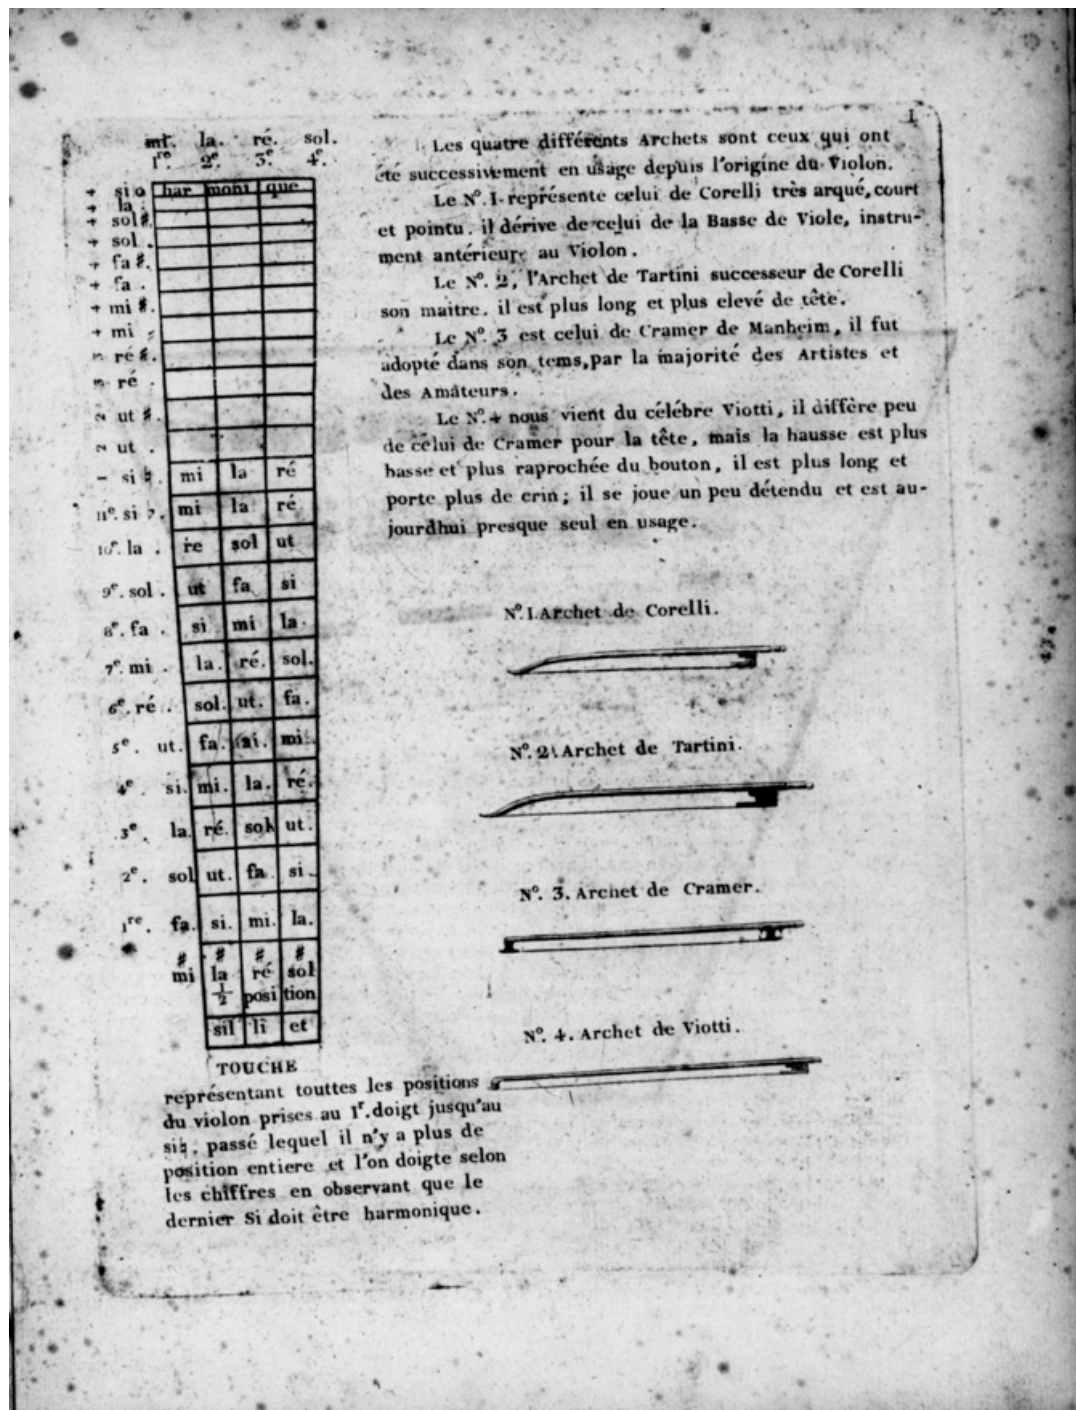 1
mi. la. ré. sol.
1re 2e. 3e. 4e.
4 si o har moni que
4 la .
4 sol #.
4 sol .
4 fa #.
4 fa .
4 mi #.
4 mi .
3 ré #.
3 ré .
2 ut #.
2 ut .
1 si ♮. mi la ré
11e. si ♭. mi la ré
10e. la . re sol ut
9e. sol . ut fa si
8e. fa . si mi la
7e. mi . la. ré. sol.
6e. ré . sol. ut. fa.
5e. ut. fa. si. mi.
4e. si. mi. la. ré.
3e. la. ré. sol ut.
2e. sol ut. fa si.
1re. fa. si. mi. la.
# # # #
mi la ré sol
1/2 posi tion
sil li et
TOUCHE
représentant touttes les positions
du violon prises au 1r. doigt jusqu'au
si♮. passé lequel il n'y a plus de
position entiere et l'on doigte selon
les chiffres en observant que le
dernier Si doit être harmonique.
Les quatre différents Archets sont ceux qui ont
été successivement en usage depuis l'origine du Violon.
Le No. 1. représente celui de Corelli très arqué, court
et pointu. il dérive de celui de la Basse de Viole, instru-
ment antérieur au Violon.
Le No. 2, l'Archet de Tartini successeur de Corelli
son maitre. il est plus long et plus elevé de tête.
Le No. 3 est celui de Cramer de Manheim, il fut
adopté dans son tems, par la majorité des Artistes et
des Amâteurs.
Le No. 4 nous vient du célébre Viotti, il diffère peu
de celui de Cramer pour la tête, mais la hausse est plus
basse et plus raprochée du bouton, il est plus long et
porte plus de crin; il se joue un peu détendu et est au-
jourdhui presque seul en usage.
No. 1. Archet de Corelli.
No. 2. Archet de Tartini.
No. 3. Archet de Cramer.
No. 4. Archet de Viotti.